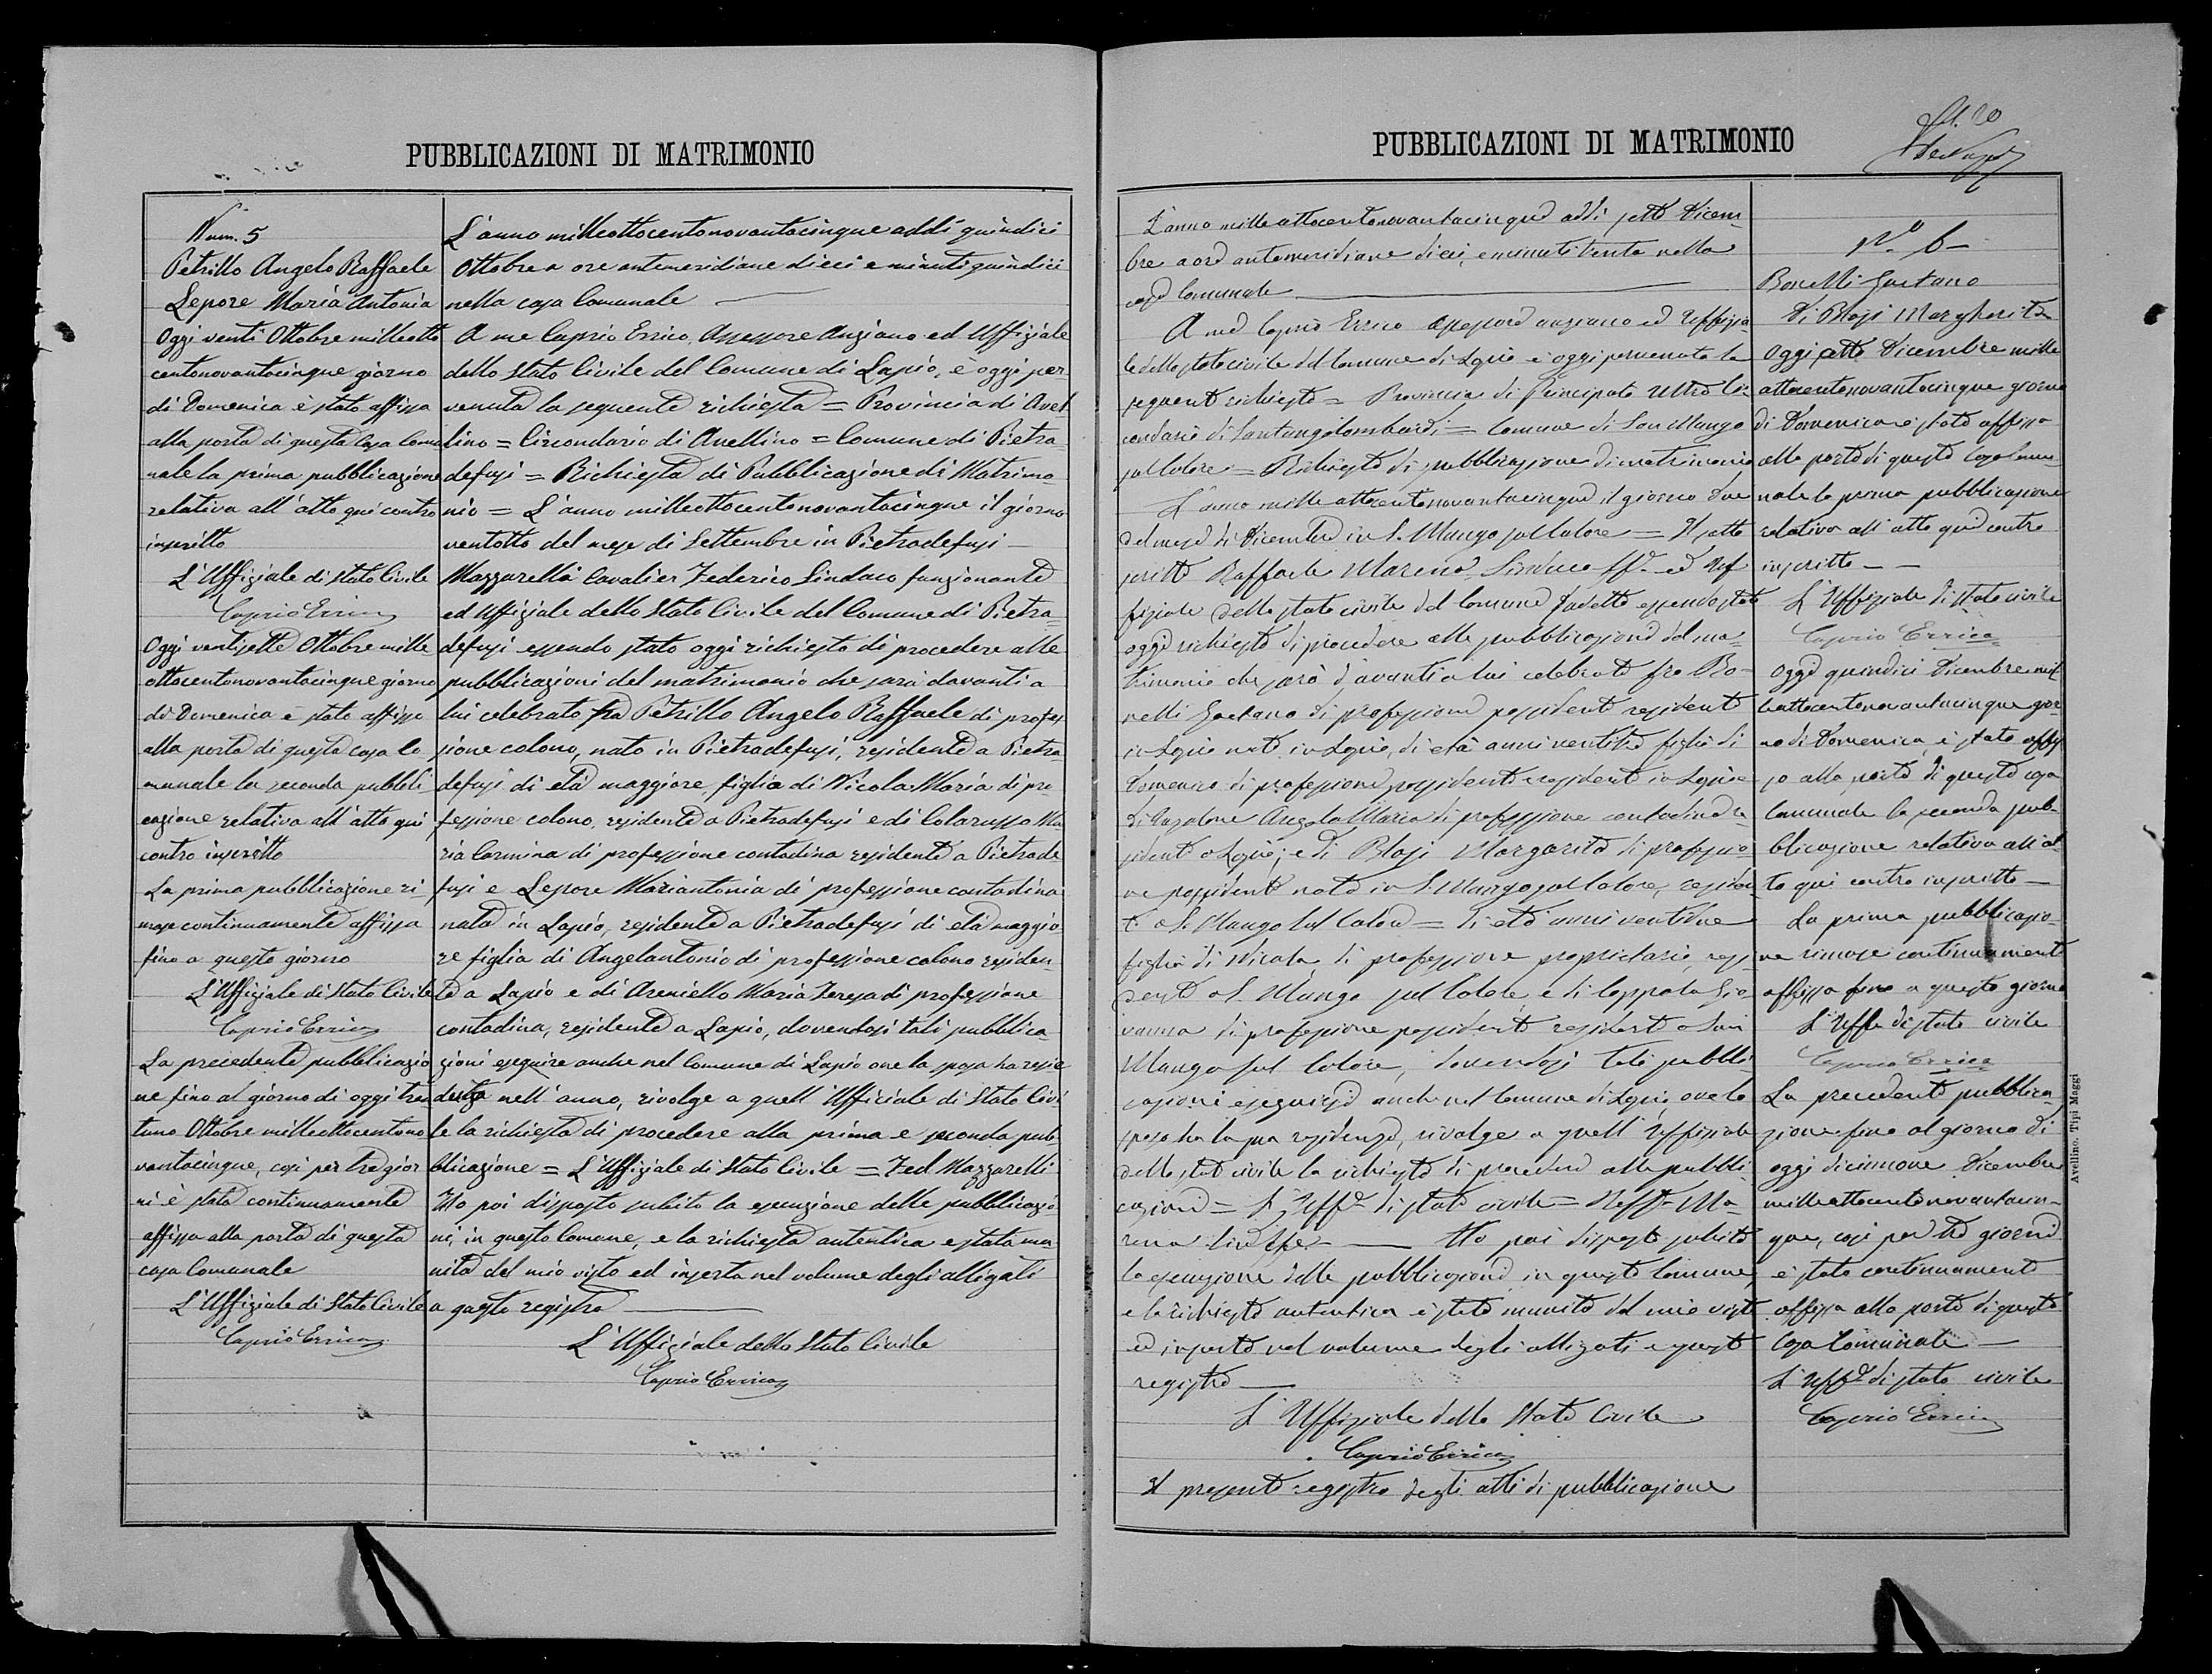 PUBBLICAZIONI DI MATRIMONIO
Num. 5
Petrillo Angelo Raffaele
Lepore Maria Antonia
Oggi venti Ottobre milleotto
centonovantacinque giorno
di Domenica è stata affissa
alla porta di questa Casa Comu
nale la prima pubblicazione
relativa all'atto qui contro
inscritto
L'Uffiziale di Stato Civile
Caprio Errico
Oggi ventisette Ottobre mille
ottocentonovantacinque giorno
di Domenica è stata affissa
alla porta di questa casa Co
munale la seconda pubbli
cazione relativa all'atto qui
contro inscritto
La prima pubblicazione ri
mase continuamente affissa
fino a questo giorno
L'Uffiziale di Stato Civile
Caprio Errico
La precedente pubblicazio
ne fino al giorno di oggi tren
tuno Ottobre milleottocentono
vantacinque, così per tre gior
ni è stata continuamente
affissa alla porta di questa
casa Comunale
L'Uffiziale di Stato Civile
Caprio Errico
L'anno milleottocentonovantacinque addì quindici
Ottobre a ore antemeridiane dieci e minuti quindici
nella casa Comunale
A me Caprio Errico, Assessore Anziano ed Uffiziale
dello Stato Civile del Comune di Lapio, è oggi per-
venuta la seguente richiesta = Provincia di Avel
lino = Circondario di Avellino = Comune di Pietra
defusi = Richiesta di Pubblicazione di Matrimo-
nio = L'anno milleottocentonovantacinque il giorno
ventotto del mese di Settembre in Pietradefusi
Mazzarelli Cavalier Federico Sindaco funzionante
ed Uffiziale dello Stato Civile del Comune di Pietra=
defusi essendo stato oggi richiesto di procedere alle
pubblicazioni del matrimonio che sarà davanti a
lui celebrato fra Petrillo Angelo Raffaele di profes
sione colono, nato in Pietradefusi, residente a Pietra
defusi di età maggiore, figlio di Nicola Maria di pro
fessione colono, residente a Pietradefusi e di Colarusso Ma
ria Carmina di professione contadina residente a Pietrade
fusi e Lepore Mariantonia di professione contadina
nata in Lapio, residente a Pietradefusi di età maggio
re figlia di Angelantonio di professione colono residen-
te a Lapio e di Areniello Maria Teresa di professione
contadina, residente a Lapio, dovendosi tali pubblica
zioni eseguire anche nel Comune di Lapio ove la sposa ha resi
denza nell'anno, rivolge a quell'Ufficiale di Stato Civi
le la richiesta di procedere alla prima e seconda pub
blicazione = L'Uffiziale di Stato Civile = Fed Mazzarelli
Ho poi disposto subito la esecuzione delle pubblicazio
ni, in questo Comune, e la richiesta autentica e stata mu
nita del mio visto ed inserta nel volume degli alligati
a questo registro
L'Uffiziale dello Stato Civile
Caprio Errico
PUBBLICAZIONI DI MATRIMONIO
L'anno milleottocentonovantacinque addì sette Dicem-
bre a ore antemeridiane dieci, e minuti trenta nella
casa Comunale
A me Caprio Errico assessore anziano ed Uffizia-
le dello stato civile del Comune di Lapio è oggi pervenuta la
seguente richiesta = Provincia di Principato Ultra Cir-
condario di Santangelolombardi = Comune di San Mango
sul Calore = Richiesta di pubblicazione di matrimonio
L'anno milleottocentonovantacinque il giorno due
del mese di Dicembre in S. Mango sul Calore = Il sotto
scritto Raffaele Marena, Sindaco ff. ed Uf
fiziale dello stato civile del Comune sudetto essendo stato
oggi richiesto di procedere alle pubblicazioni del ma-
trimonio che sarà d'avanti a lui celebrato fra Bo-
nelli Gaetano di professione possidente residente
in Lapio nato in Lapio, di età anni ventitre figlio di
Domenico di professione possidente residente in Lapio e
di Angela Maria di professione contadina re
sidente a Lapio; e di Blasi Margarita di professio-
ne possidente nata in S. Mango sul Calore, residen
te a S. Mango sul Calore = di età anni ventidue
figlia di Nicola di professione proprietario, resi-
dente a S. Mango sul Calore e di Coppola Gio
vanna di professione possidente residente a San
Mango sul Calore, dovendosi tali pubbli-
cazioni eseguirsi anche nel Comune di Lapio ove lo
sposo ha la sua residenza, rivolge a quell'Uffiziale
dello stato civile la richiesta di procedere alle pubbli
cazioni = L'Uff.e di stato civile = Raff. Ma-
rena Ho poi disposto subito
la esecuzione delle pubblicazioni in questo Comune,
e la richiesta autentica è stata munita del mio visto
ed inserta nel volume degli alligati a questo
registro
L'Uffiziale dello Stato Civile
Caprio Errico
Il presente registro degli atti di pubblicazione
N.o 6
Bonelli Gaetano
Di Blasi Margherita
Oggi otto Dicembre mille
ottocentonovantacinque giorno
di Domenica è stata affissa
alla porta di questa Casa Comu-
nale la prima pubblicazione
relativa all'atto qui contro
inscritto
L'Uffiziale di stato civile
Caprio Errico
Oggi quindici Dicembre mil
leottocentonovantacinque gior
no di Domenica, è stata affis
sa alla porta di questa casa
Comunale la seconda pub-
blicazione relativa all'at-
to qui contro inscritto
La prima pubblicazio-
ne rimase continuamente
affissa fino a questo giorno
L'Uff.e di stato civile
Caprio Errico
La precedente pubblica-
zione fino al giorno di
oggi diciannove Dicembre
milleottocentonovantacin-
que, così per tre giorni
è stata continuamente
affissa alla porta di questa
Casa Comunale
L'Uff.e di stato civile
Caprio Errico
Avellino. Tipi Maggi